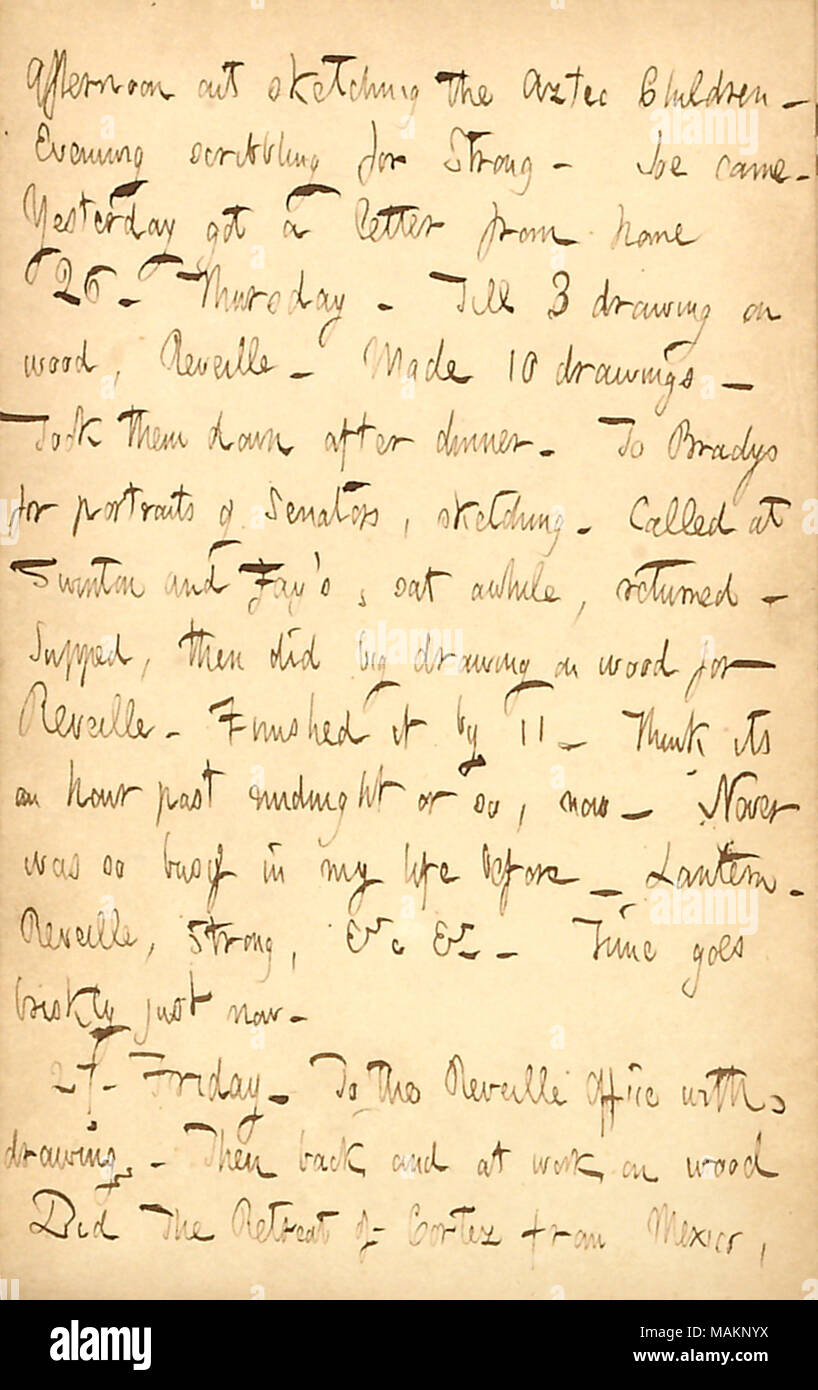 Afternoon out sketching the Aztec Children –
Evening scribbling for Strong – Joe came –
Yesterday got a letter from home
26 – Thursday – Till 3 drawing on
wood, Reveille – Made 10 drawings –
Took them down after dinner – To Bradys
for portraits of Senators, sketching – Called at
Swinton and Fay's, sat awhile, returned –
Supped, then did big drawing on wood for
Reveille – Finished it by 11 – Think its
an hour past midnight or so, now – Never
was so busy in my life before – Lantern –
Reveille, Strong, &c &c – Time goes
briskly just now –
27 – Friday – To the Reveille Office with
drawing – Then back and at work on wood
Did The Retreat of Cortez from Mexico,
alamy
a
alamy stock photo
Image ID: MAKNYX
www.alamy.com